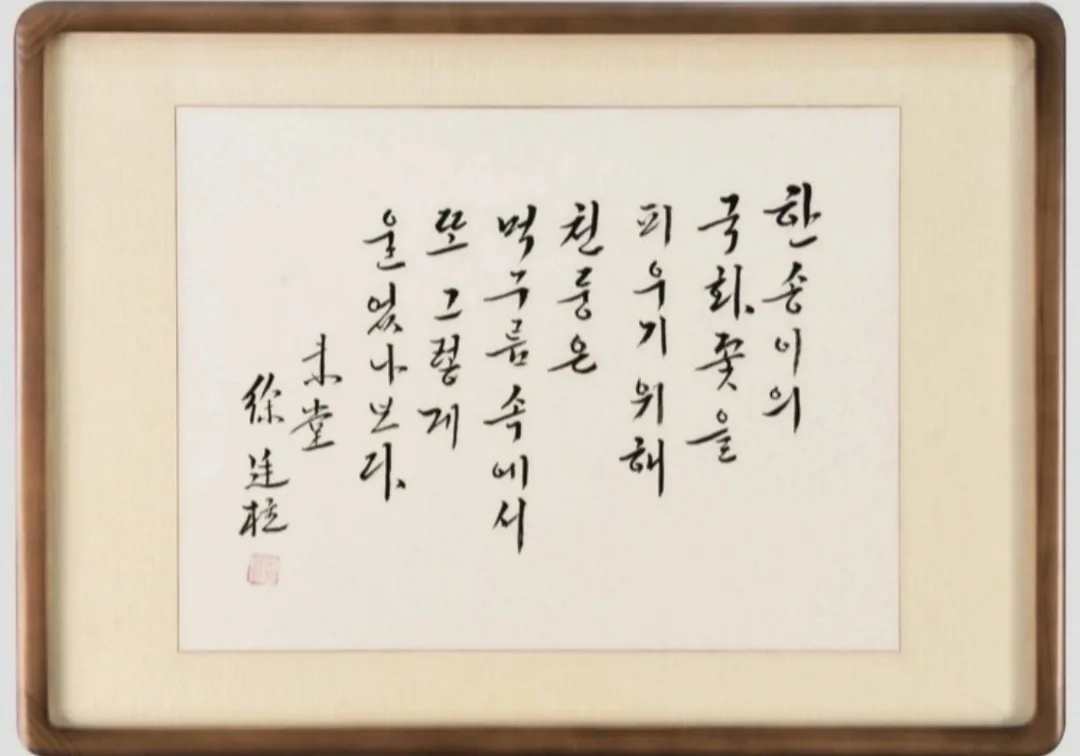 한 송이의
국화꽃을
피우기 위해
천둥은
먹구름 속에서
또 그렇게
울었나보다.
未堂
徐廷柱